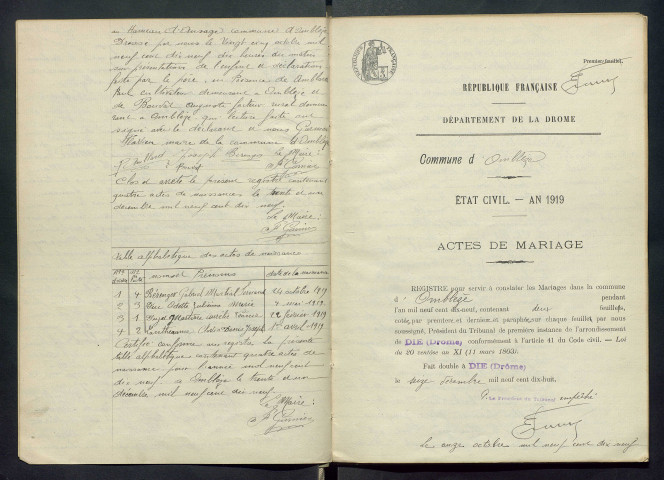 au Hameau d'Ansage commune d'Omblèze
Drôme par nous le vingt cinq octobre mil
neuf cent dix neuf dix heures du matin
sur présentation de l'enfant et déclarations
faite par le père, en présence de
cultivateur demeurant à Omblèze et
de Bouvat Auguste facteur rural demeu
rant à Omblèze, qui lecture faite ont
signé avec le déclarant et nous
maire de la commune d'Omblèze
Joseph Le Maire
Clos et arrêté le présent registre contenant
quatre actes de naissances le trente et un
décembre mil neuf cent dix neuf
Le Maire:
Table alphabétique des actes de naissances
Nos Nos Noms et Prénoms date de la naissance
1 4 Marcel Fernand 24 octobre 1919
2 3 Odette Marie 7 mai 1919
3 1 22 février 1919
4 2 Joseph 1er avril 1919
Certifié conforme au registre la présente
table alphabétique contenant quatre actes de
naissance pour l'année mil neuf cent
dix neuf à Omblèze le trente et un
décembre mil neuf cent dix neuf
Le Maire:
Premier feuillet.
RÉPUBLIQUE FRANÇAISE
RÉPUBLIQUE FRANÇAISE
DÉPARTEMENT DE LA DROME
Commune d Omblèze
ÉTAT CIVIL. — AN 1919
ACTES DE MARIAGE
REGISTRE pour servir à constater les Mariages dans la commune
d' Omblèze pendant
l'an mil neuf cent dix-neuf, contenant deux feuillets,
cotés, par premier et dernier, et paraphés, sur chaque feuillet, par nous
soussigné, Président du Tribunal de première instance de l'arrondissement
de DIE (Drôme), conformément à l'article 41 du Code civil. — Loi
du 20 ventôse an XI (11 mars 1803).
Fait double à DIE (Drôme)
le seize décembre mil neuf cent dix-huit.
P. Le Président du Tribunal empêché
Le onze octobre mil neuf cent dix neuf